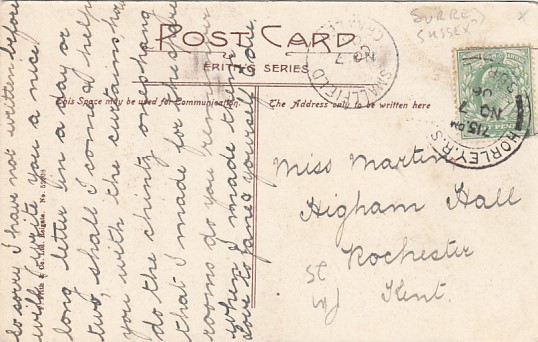 SURREY
SUSSEX
x
POST CARD
ERITH'S SERIES
This Space may be used for Communication
The Address only to be written here
SMALLFIELD
NO 7
HORLEY. R.S.O.
7.15 PM
NO 7
06
so sorry I have not written before
will write you a nice
long letter in a day or
two, shall I come & help
you with the curtains &
do the chintz ones hang
that I made for the spare
rooms do you remember
when I made them
love to Jane yourself & do.
Miss Martin
Higham Hall
Rochester
Kent.
& Co. Ltd. Reigate. No.